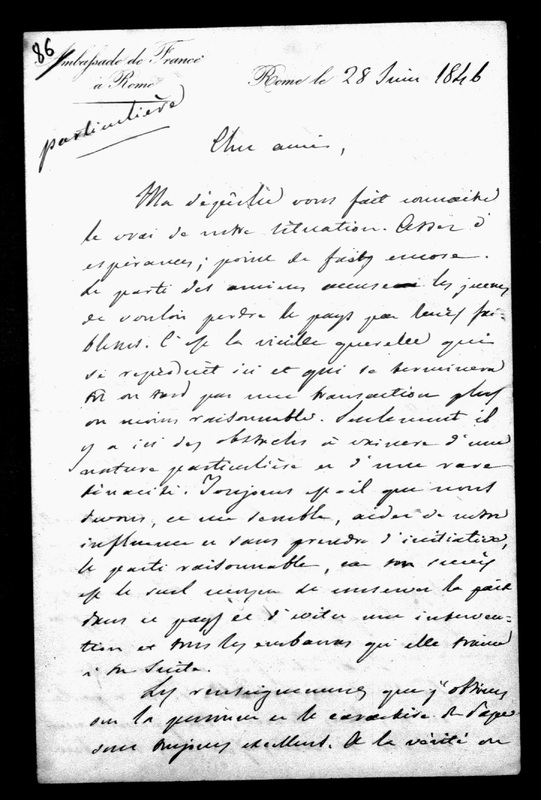 86
Ambassade de France
à Rome
Rome le 28 Juin 1846
particulière
Cher ami,
Ma dépêche vous fait connaître
le vrai de notre situation. Assez d'
espérances ; point de faits encore.
Le parti des anciens accuse les jeunes
de vouloir perdre le pays par leurs fai-
blesses. C'est la vieille querelle qui
se reproduit ici et qui se terminera
tôt ou tard par une transaction plus
ou moins raisonnable. Seulement il
y a ici des obstacles à vaincre d'une
nature particulière et d'une rare
ténacité. Toujours est-il que nous
devons, ce me semble, aider de notre
influence et sans prendre d'initiative,
le parti raisonnable, car son succès
est le seul moyen de conserver la paix
dans ce pays et d'éviter une interven-
tion et tous les embarras qu'elle traîne
à sa suite.
Les renseignemens que j'obtiens
sur la personne et le caractère du Pape
sont toujours excellents. A la vérité on